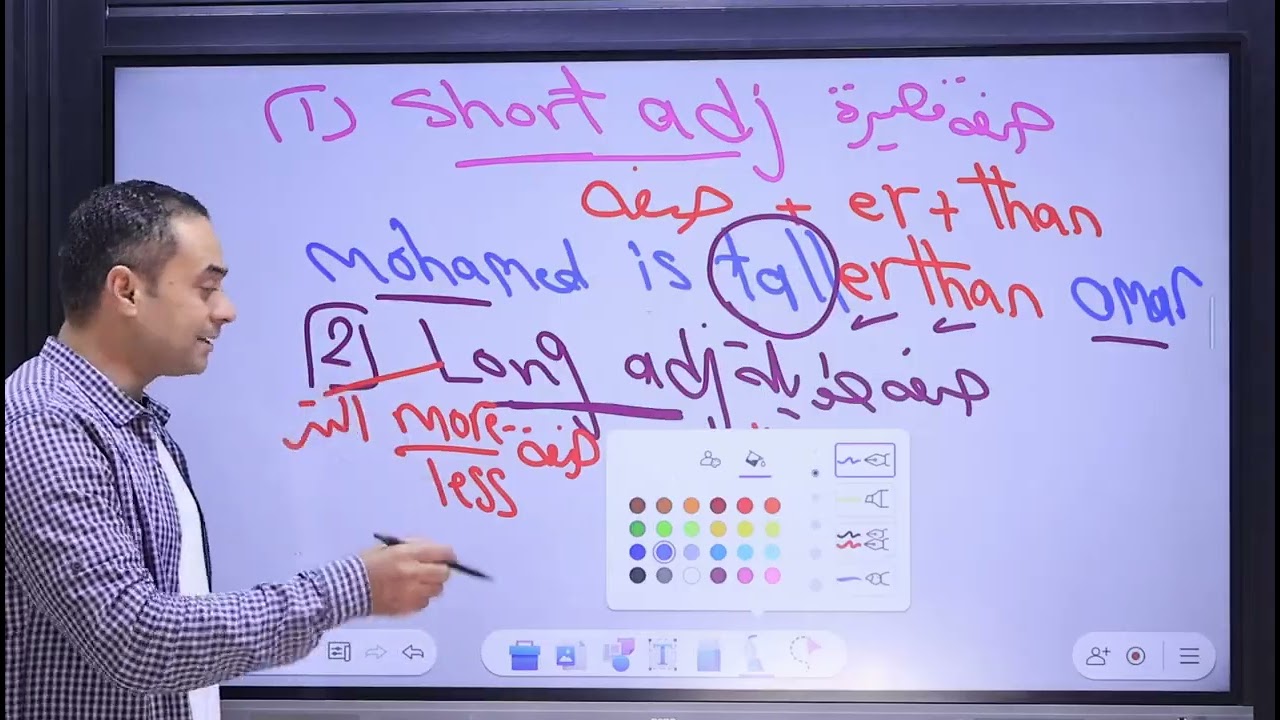 (1) short adj صفة قصيرة
صفة + er + than
mohamed is taller than omar
2 Long adj صفة
more صفة
less
T